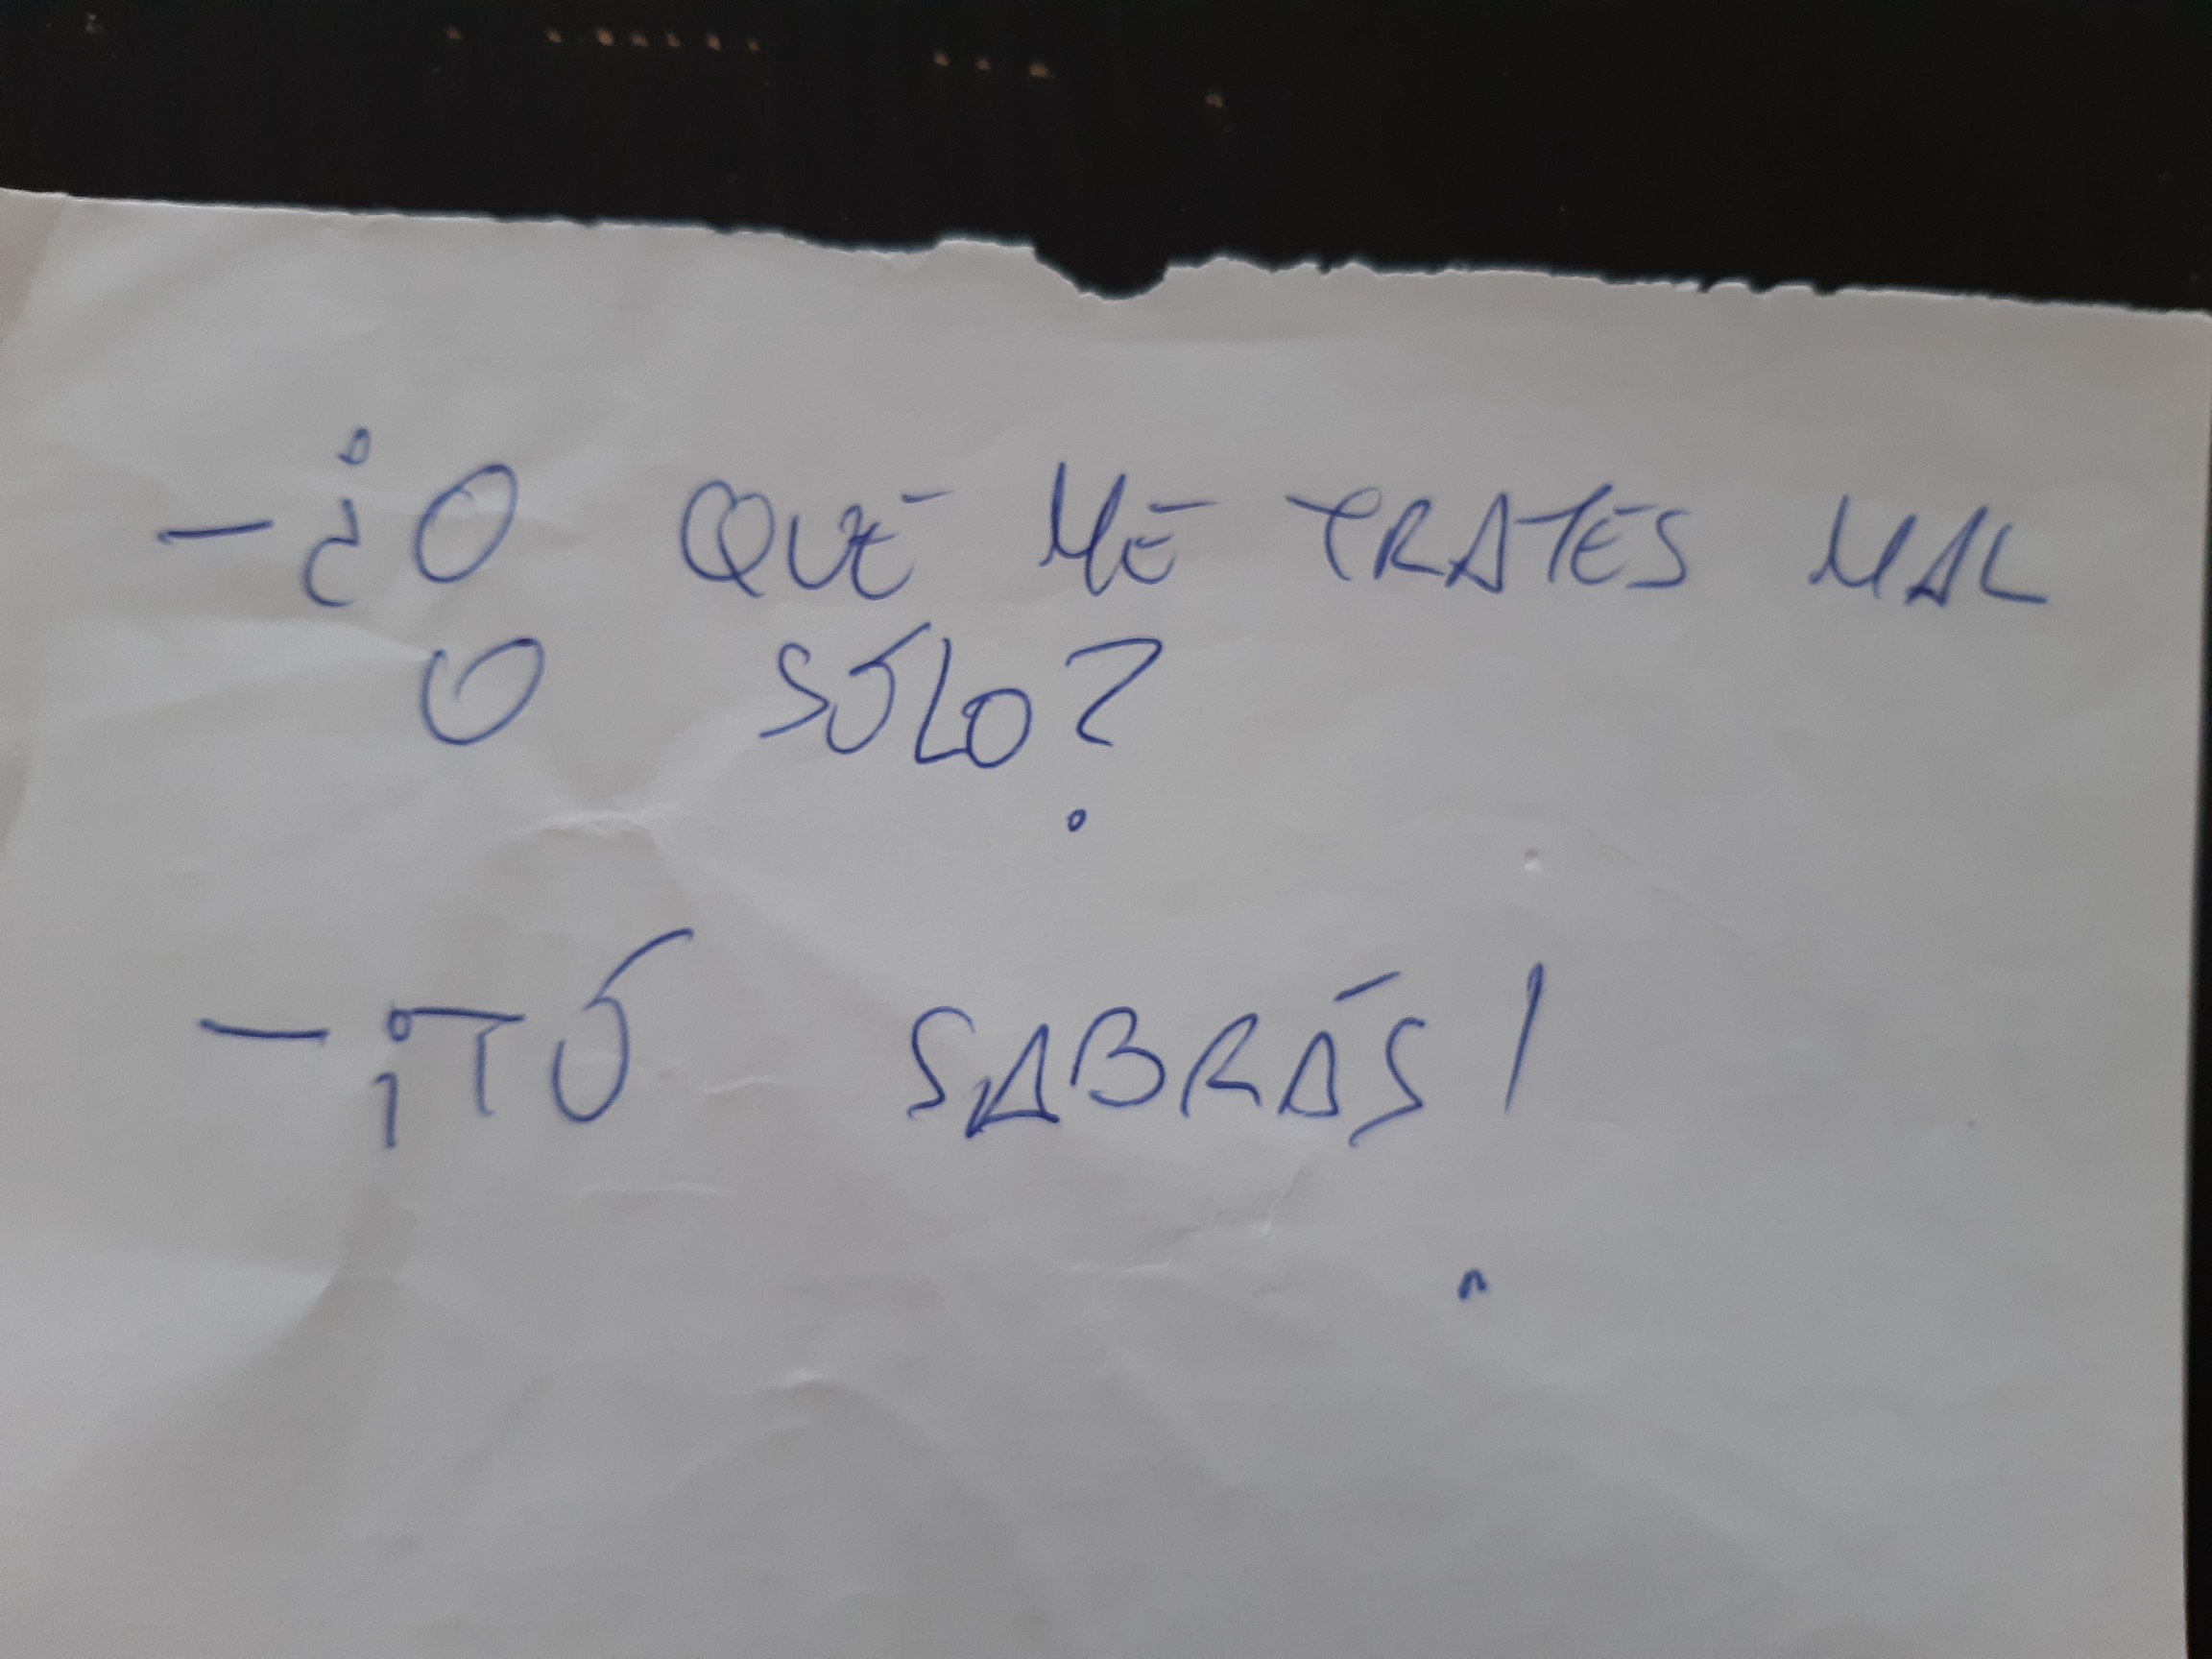 -¿O QUE ME TRATES MAL
O SÓLO?
-¡TÚ SABRÁS!